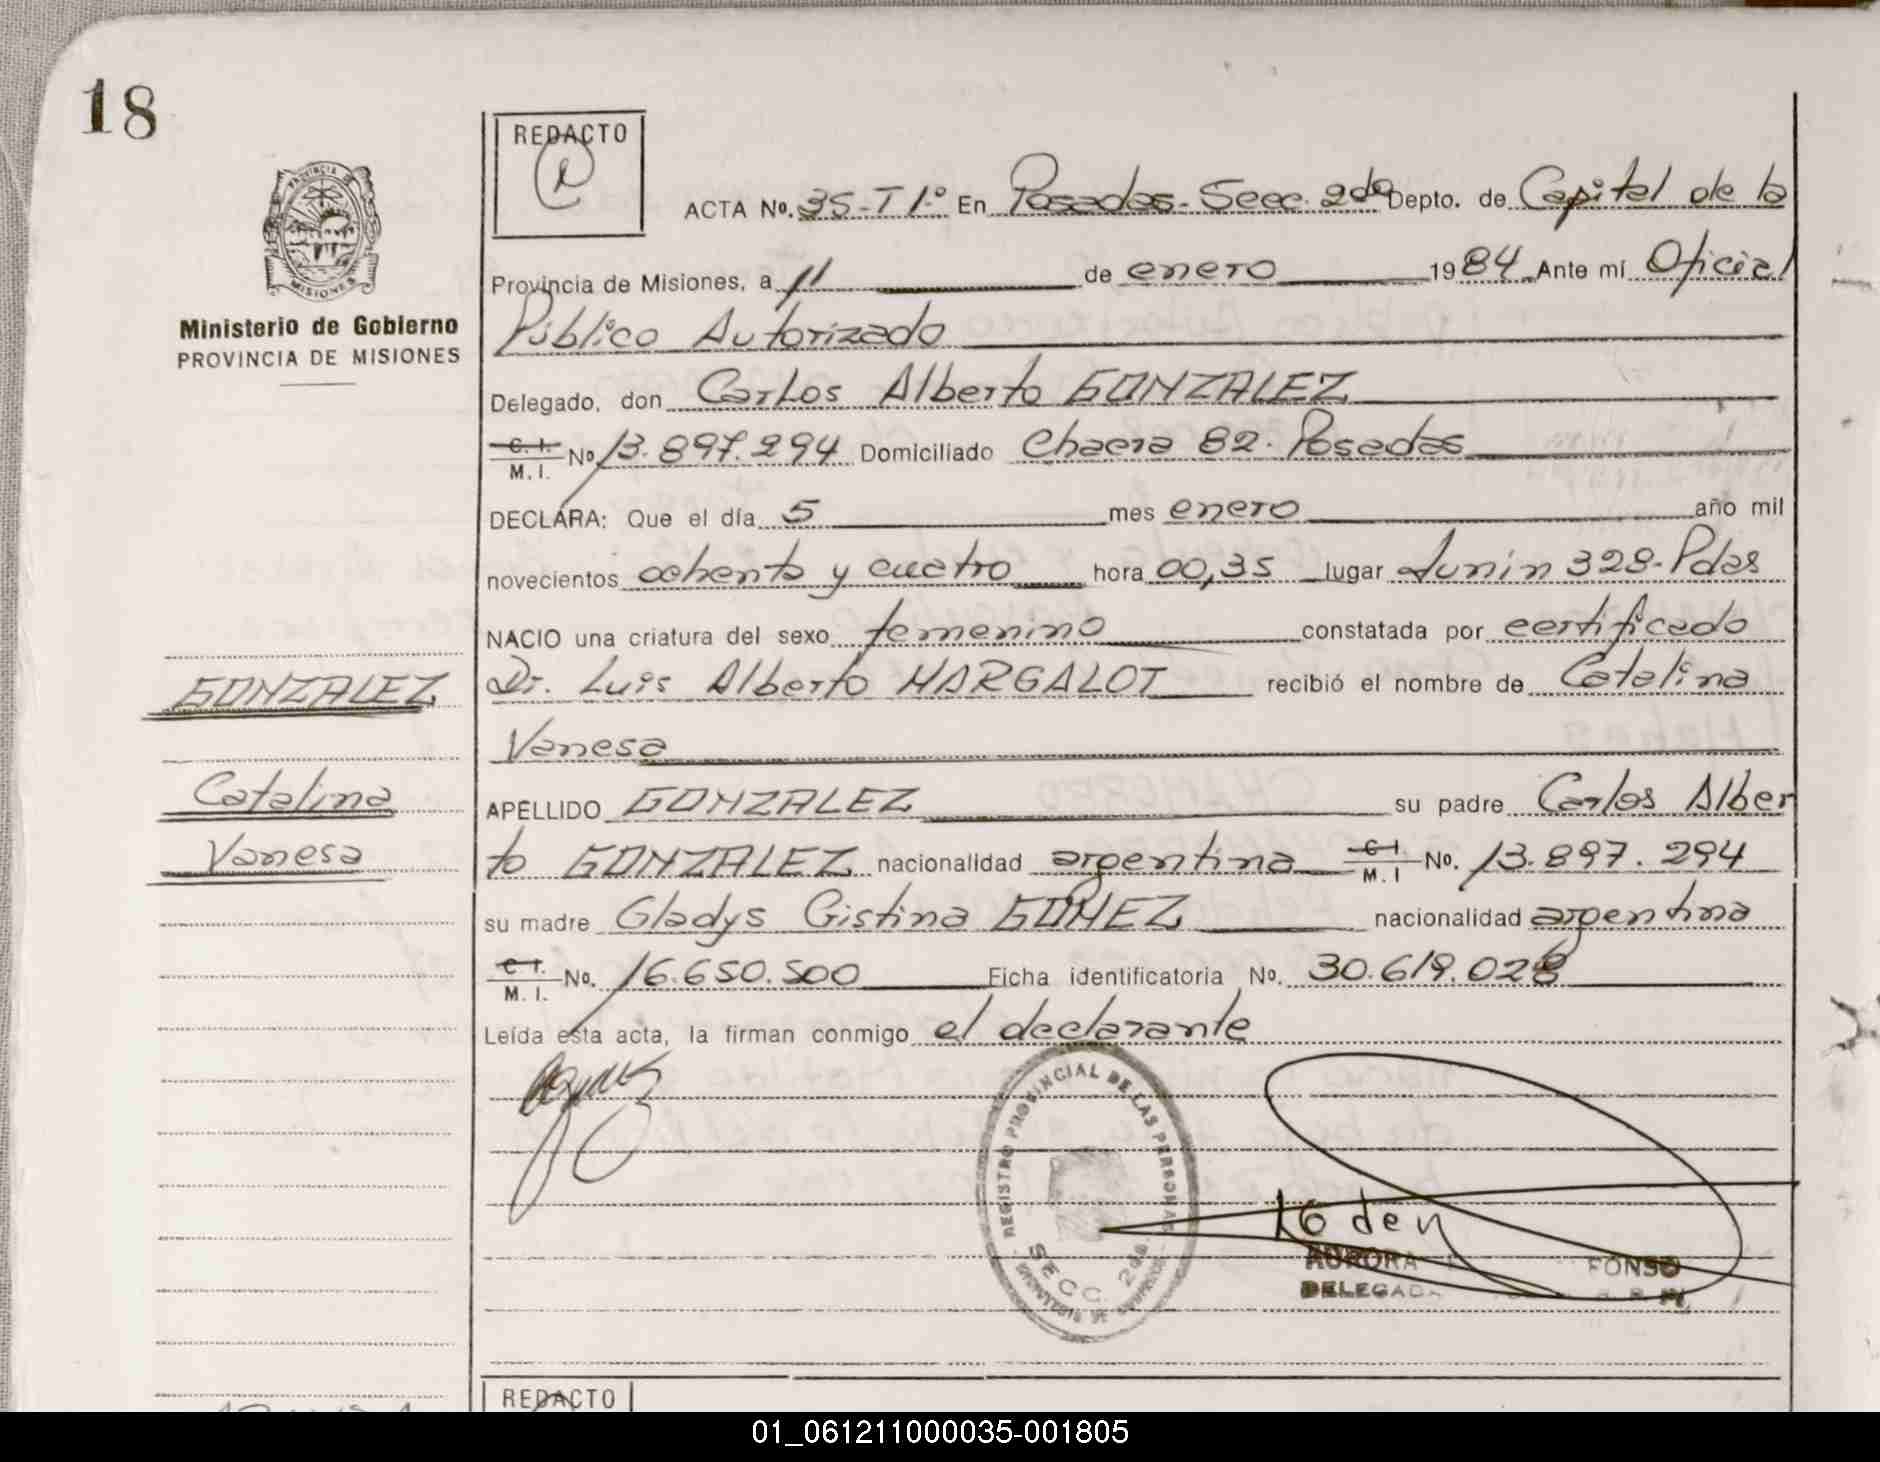 18
REDACTO
ACTA No. 35-T 1.° En Posadas-Secc. 2da Depto. de Capital de la
PROVINCIA DE
MISIONES
Provincia de Misiones, a 11 de enero 1984 Ante mí Oficial
Ministerio de Gobierno
PROVINCIA DE MISIONES
Público Autorizado
Delegado, don Carlos Alberto GONZALEZ
C. I.
M. I. No 13.897.294 Domiciliado Chacra 82. Posadas
DECLARA: Que el día 5 mes enero año mil
novecientos ochenta y cuatro hora 00,35 lugar Junín 328-Pdas
NACIO una criatura del sexo femenino constatada por certificado
GONZALEZ
Dr. Luis Alberto MARGALOT recibió el nombre de Catalina
Vanesa
Catalina
APELLIDO GONZALEZ su padre Carlos Alber
Vanesa
to GONZALEZ nacionalidad argentina C I
M. I No. 13.897.294
su madre Gladys Cistina GOMEZ nacionalidad argentina
C I.
M. I. No. 16.650.500 Ficha identificatoria No. 30.619.028
Leída esta acta, la firman conmigo el declarante
REGISTRO PROVINCIAL DE LAS PERSONAS
SECC. 2da.
AURORA FONSO
DELEGADA
REDACTO
01_061211000035-001805